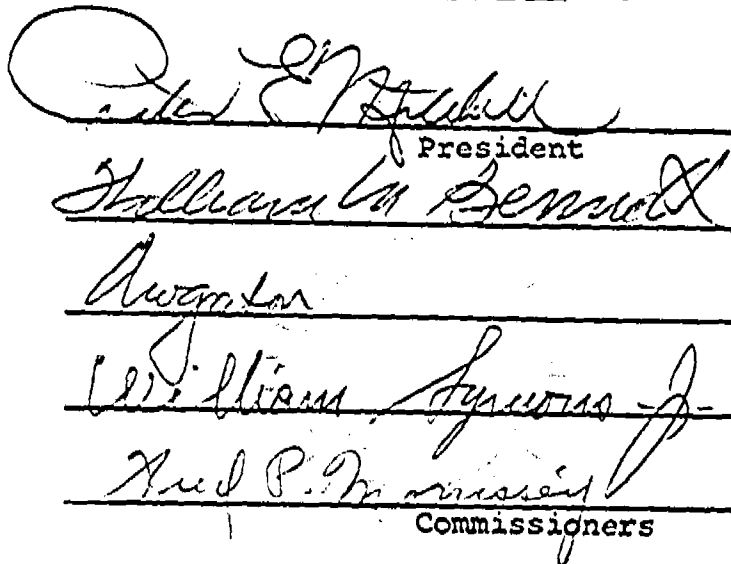 Peter E Mitchell
President
William M Bennett
William Symons Jr-
Fred P. Morrissey
Commissioners